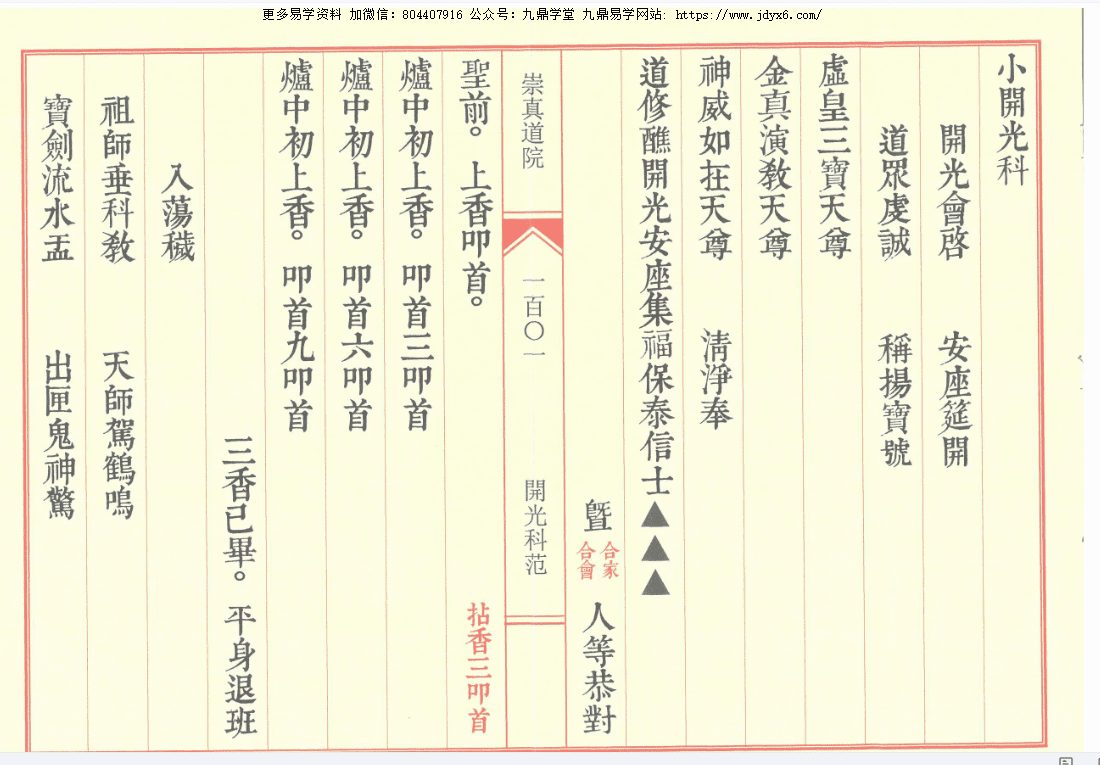 更多易学资料 加微信：804407916 公众号：九鼎学堂 九鼎易学网站: https://www.jdyx6.com/
小開光科
開光會啓 安座筵開
道眾虔誠 稱揚寶號
虛皇三寶天尊
金真演敎天尊
神威如在天尊 淸淨奉
道修醮開光安座集福保泰信士▲▲▲
暨 合家 合會 人等恭對
崇真道院 一百〇一 開光科范
聖前。上香叩首。 拈香三叩首
爐中初上香。叩首三叩首
爐中初上香。叩首六叩首
爐中初上香。叩首九叩首
三香已畢。平身退班
入蕩穢
祖師垂科敎 天師駕鶴鳴
寶劍流水盂 出匣鬼神驚